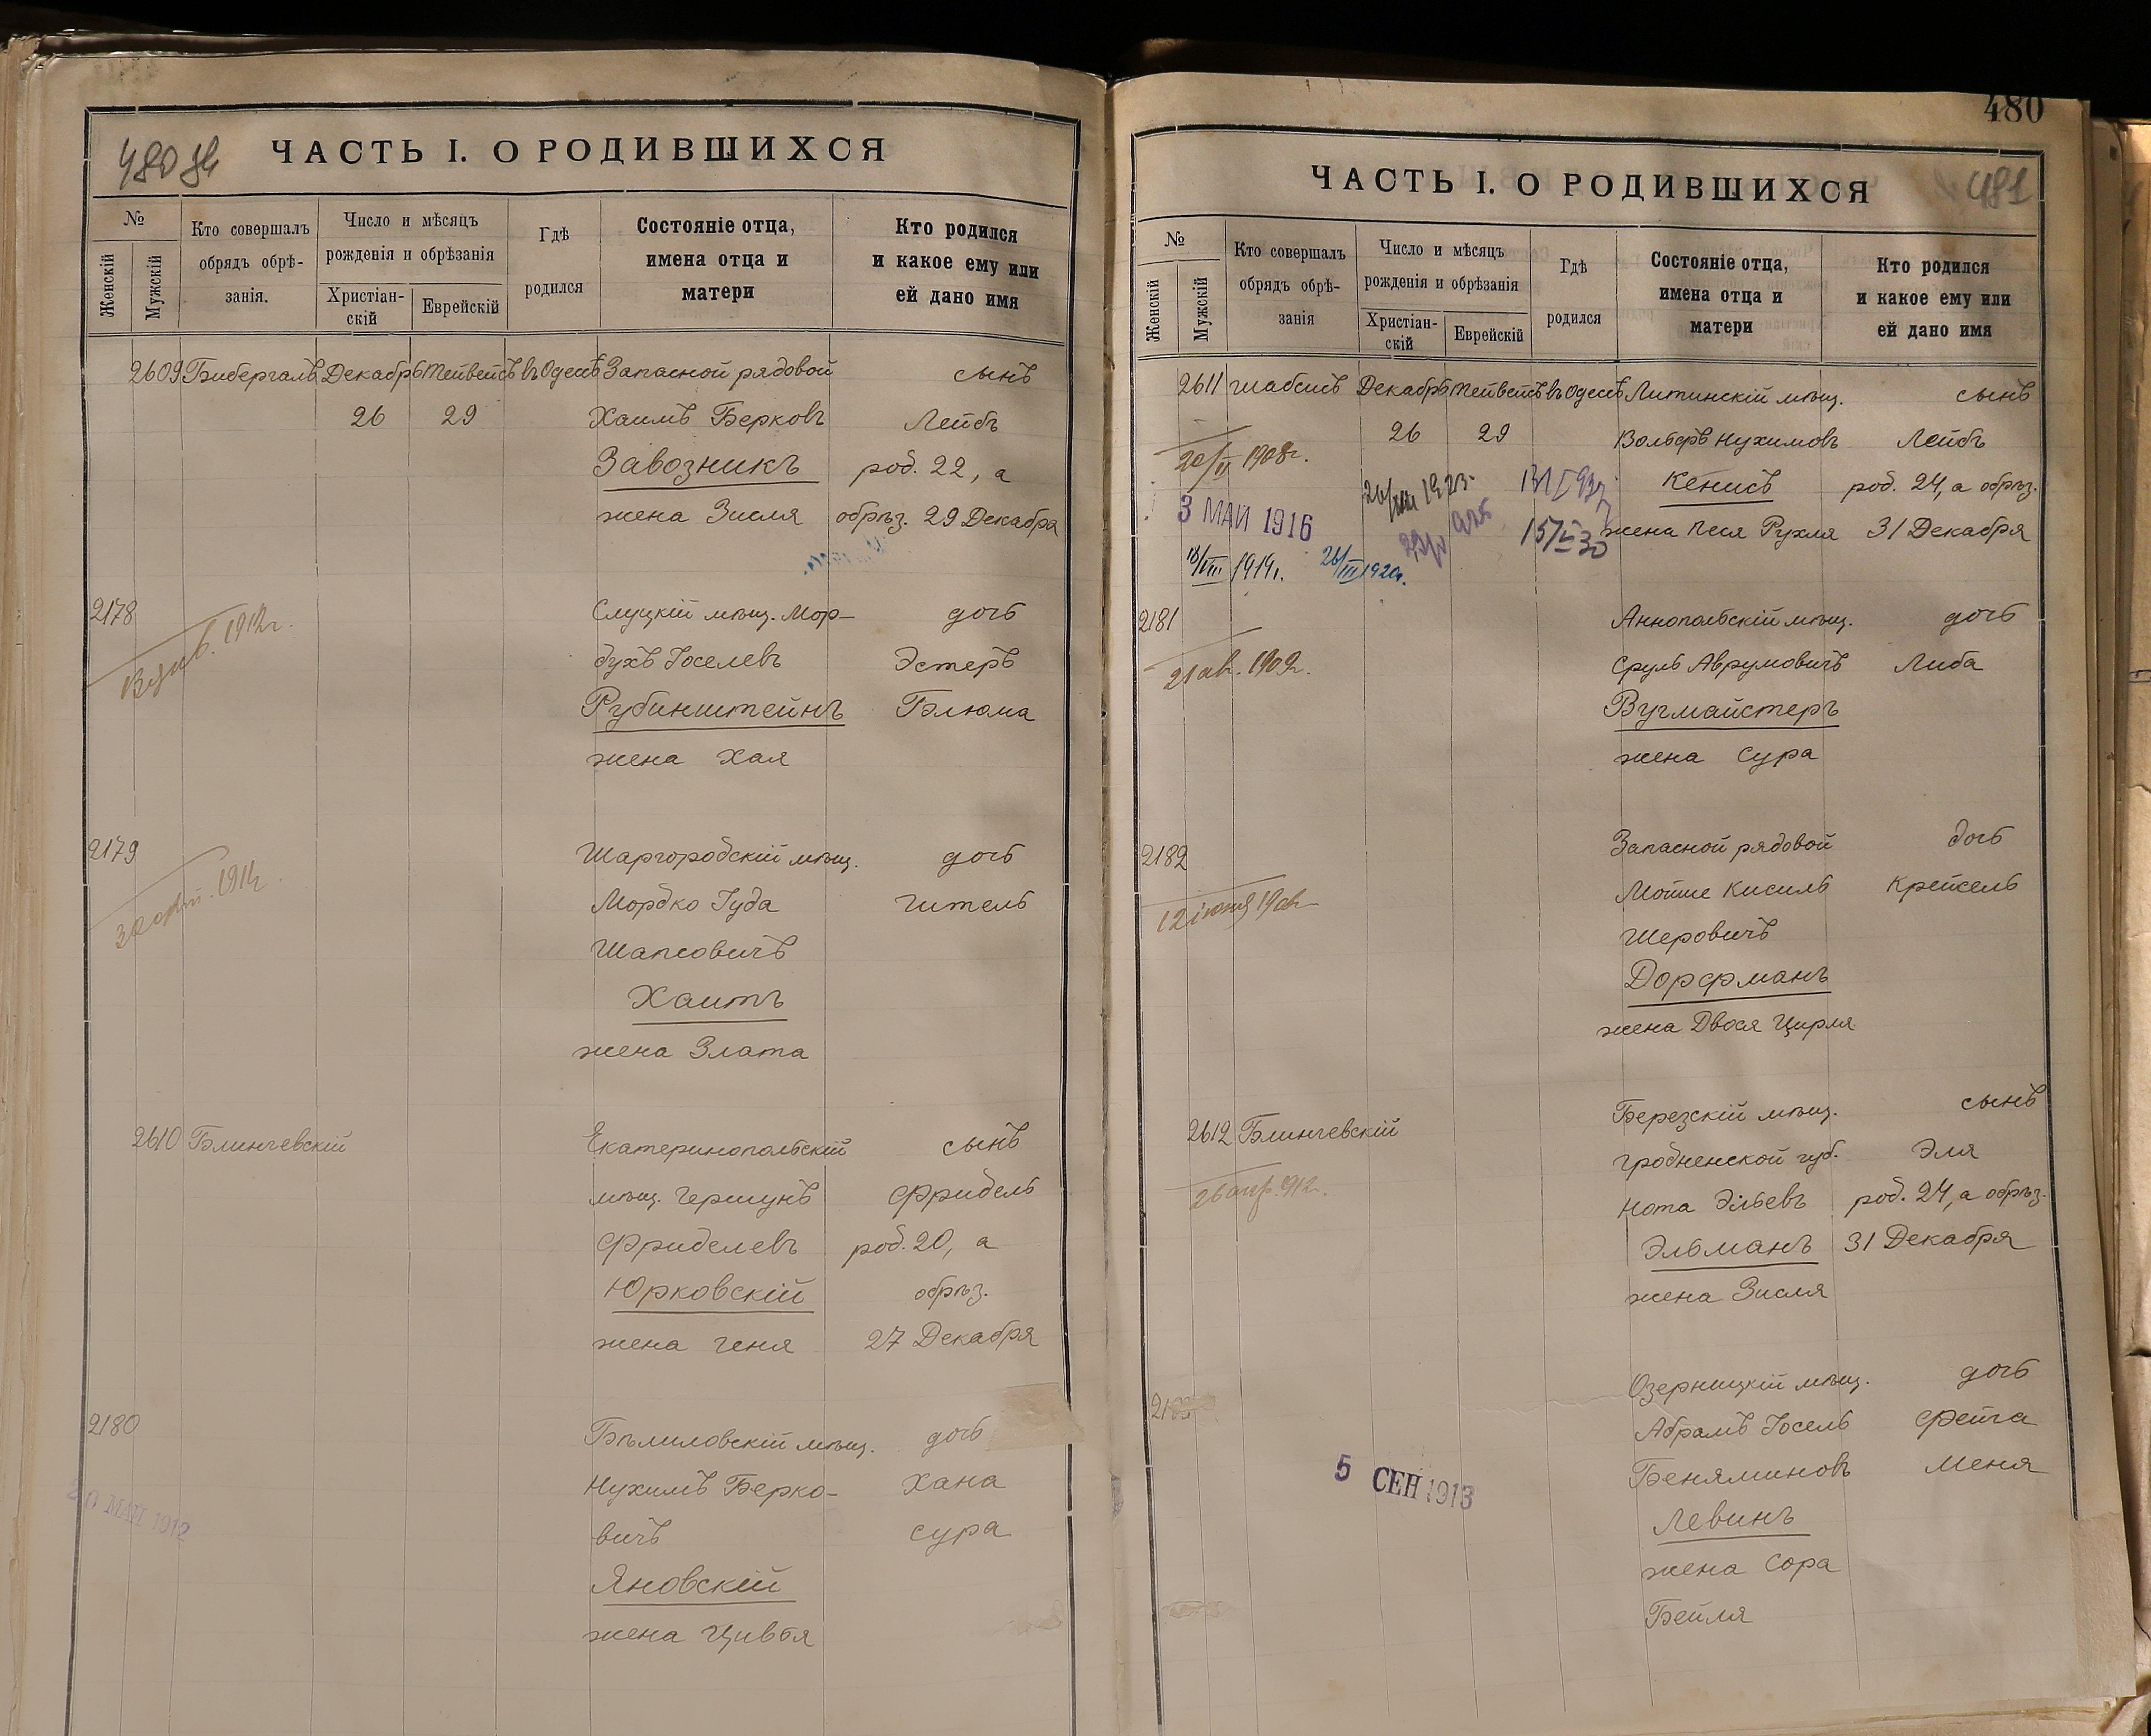 480 об
ЧАСТЬ I. О РОДИВШИХСЯ
№
Женскій
Мужскій
Кто совершалъ
обрядъ обрѣ-
занія.
Число и мѣсяцъ
рожденія и обрѣзанія
Христіан-
скій
Еврейскій
Гдѣ
родился
Состояніе отца,
имена отца и
матери
Кто родился
и какое ему или
ей дано имя
2609 Бибергалъ Декабрь Тейвейсъ въ Одессѣ Запасной рядовой сынъ
26 29 Хаимъ Берковъ Лейбъ
Завозникъ род. 22, а
жена Зисля обрѣз. 29 Декабря
2178 Слуцкій мѣщ. Мор- дочь
духъ Іоселевъ Эстеръ
1912г.
Рубинштейнъ Блюма
жена Хая
2179 Шаргородскій мѣщ. дочь
Мордко Іуда Гитель
Шапсовичъ
Хаитъ
жена Злата
2610 Блинчевскій Екатеринопольскій сынъ
мѣщ. Гершунъ Фридель
Фриделевъ род. 20, а
Юрковскій обрѣз.
жена Геня 27 Декабря
2180 Бѣлиловскій мѣщ. дочь
Нухимъ Берко- Хана
20 МАЙ 1912
вичъ Сура
Яновскій
жена Цивья
480
481
ЧАСТЬ I. О РОДИВШИХСЯ
№
Женскій
Мужскій
Кто совершалъ
обрядъ обрѣ-
занія
Число и мѣсяцъ
рожденія и обрѣзанія
Христіан-
скій
Еврейскій
Гдѣ
родился
Состояніе отца,
имена отца и
матери
Кто родился
и какое ему или
ей дано имя
2611 Шабсисъ Декабрь Тейвейсъ въ Одессѣ Литинскій мѣщ. сынъ
26 29 Вольфъ Нухимовъ Лейбъ
20/II 1908г.
Кенисъ род. 24, а обрѣз.
3 МАЙ 1916
жена Песя Рухля 31 Декабря
18/VIII 1919г. 26/III 1920г.
2181 Аннопольскій мѣщ. дочь
21 ав. 1909г. Сруль Аврумовичъ Либа
Вугмайстеръ
жена Сура
2182 Запасной рядовой дочь
Мотие Кисиль Крейсель
Шеровичъ
Дорфманъ
жена Двося Цирля
2612 Блинчевскій Березскій мѣщ. сынъ
Гродненской губ. Эля
26 апр. 912. Нота Эльевъ род. 24, а обрѣз.
Эльманъ 31 Декабря
жена Зисля
Озерницкій мѣщ. дочь
Абрамъ Іосель Фейга
5 СЕН 1913 Беняминовъ Меня
Левинъ
жена Сора
Бейля